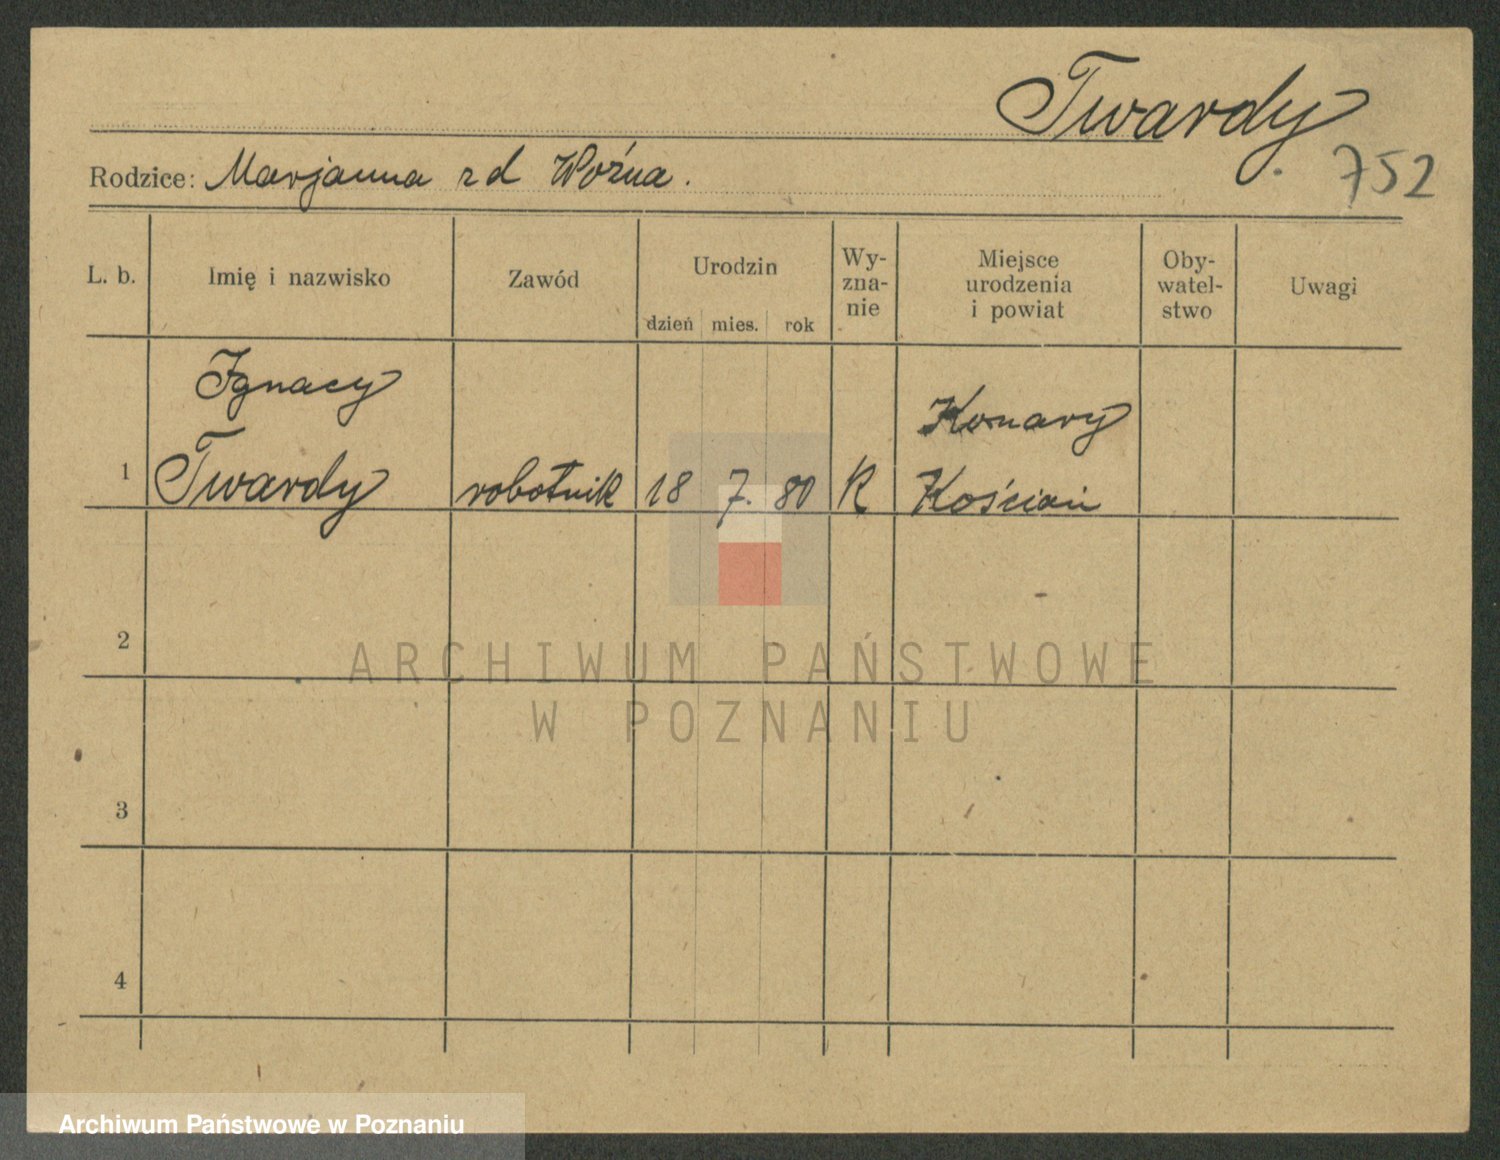 Twardy
752
Rodzice: Marjanna zd Woźna.
L. b.
Imię i nazwisko
Zawód
Urodzin
dzień mies. rok
Wy-
zna-
nie
Miejsce
urodzenia
i powiat
Oby-
watel-
stwo
Uwagi
1
Ignacy
Twardy
robotnik
18 7. 80
K
Konary
Kościan
2
3
4
ARCHIWUM PAŃSTWOWE
W POZNANIU
Archiwum Państwowe w Poznaniu